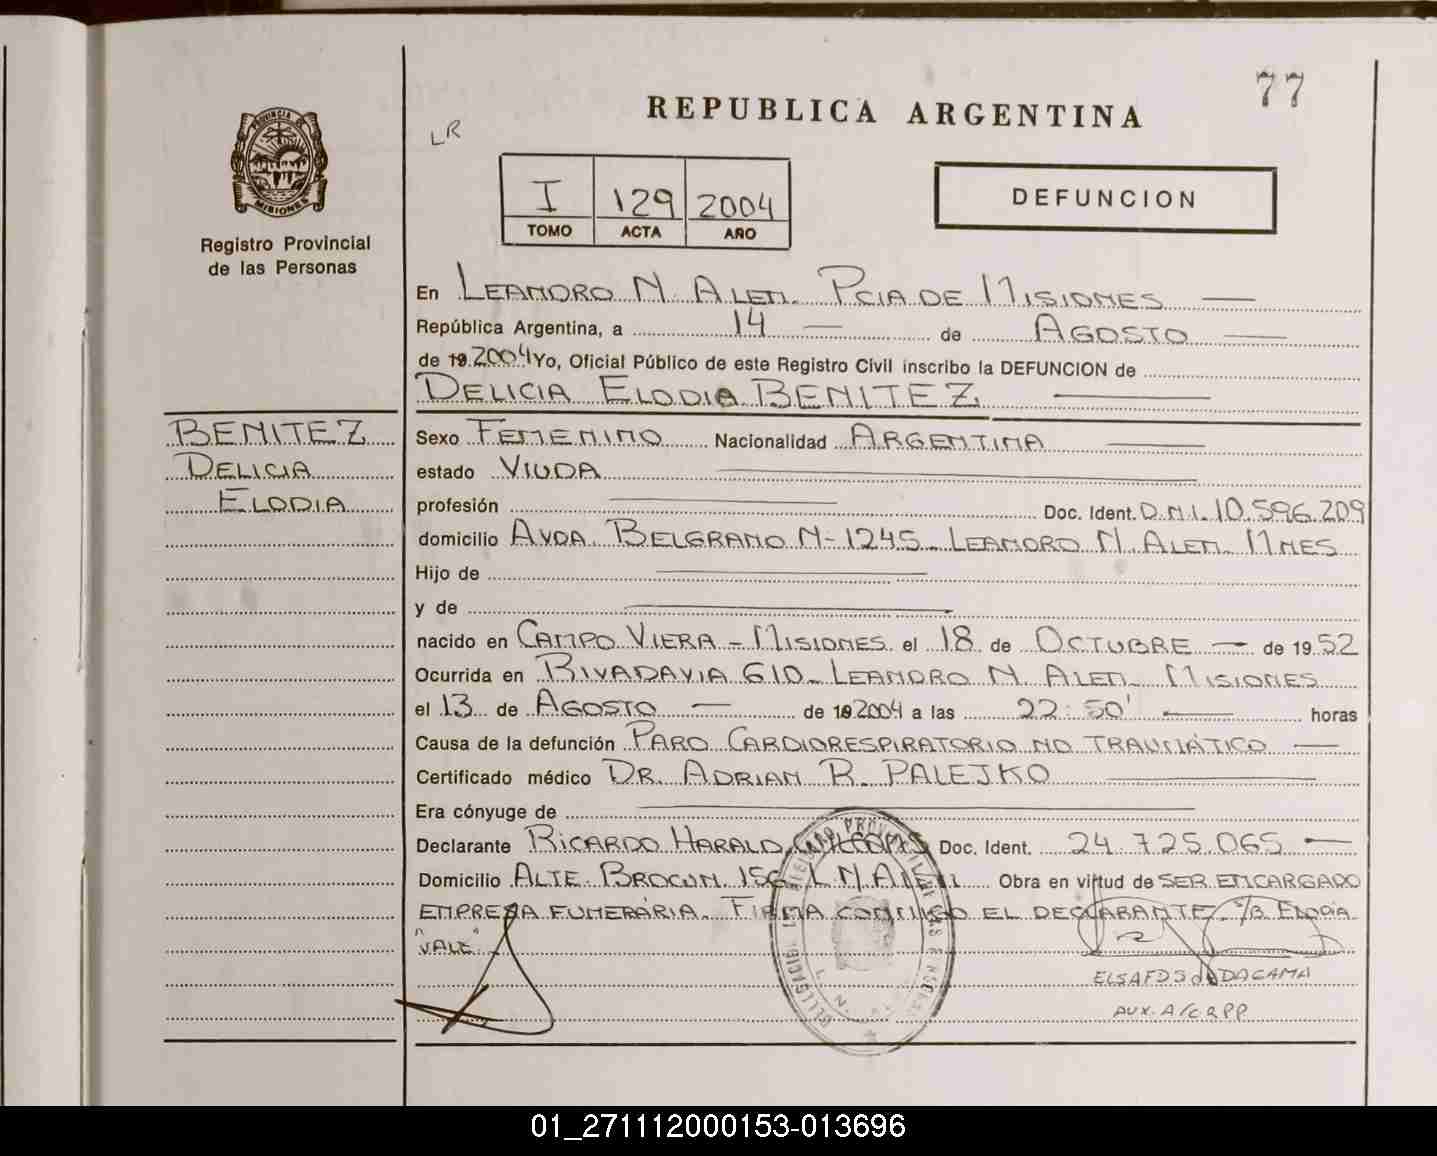 77
REPUBLICA ARGENTINA
LR
PROVINCIA DE
MISIONES
Registro Provincial
de las Personas
I 129 2004
TOMO ACTA AÑO
DEFUNCION
En LEANDRO N. ALEM. PCIA DE MISIONES
República Argentina, a 14 de AGOSTO
de 19 2004 Yo, Oficial Público de este Registro Civil inscribo la DEFUNCION de
DELICIA ELODIA BENITEZ
BENITEZ
DELICIA
ELODIA
Sexo FEMENINO Nacionalidad ARGENTINA
estado VIUDA
profesión Doc. Ident. D.N.I. 10.596.209
domicilio AVDA. BELGRANO N-1245 - LEANDRO N. ALEM. MNES
Hijo de
y de
nacido en CAMPO VIERA - MISIONES. el 18 de OCTUBRE de 19 52
Ocurrida en RIVADAVIA 610 - LEANDRO N. ALEM - MISIONES
el 13 de AGOSTO de 19 2004 a las 22:50' horas
Causa de la defunción PARO CARDIORESPIRATORIO NO TRAUMÁTICO
Certificado médico DR. ADRIAN R. PALEJKO
Era cónyuge de
Declarante RICARDO HARALD Doc. Ident. 24.725.065
Domicilio ALTE. BROWN. 156 L. N. ALEM Obra en virtud de SER ENCARGADO
EMPRESA FUNERÁRIA. FIRMA CONMIGO EL DECLARANTE. S/B ELODIA
"VALE".
AUX. A/C RPP
01_271112000153-013696